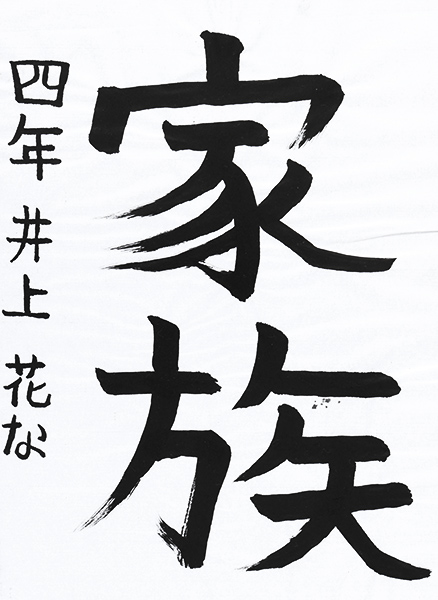 家族
四年 井上 花な